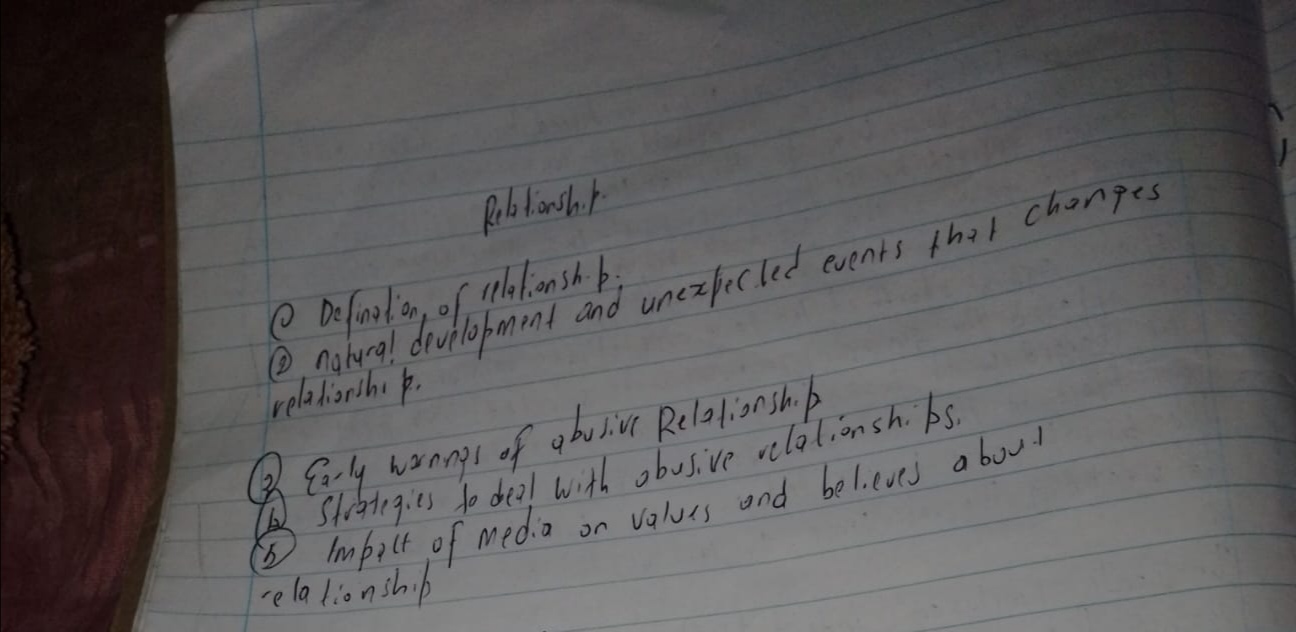 Relationship.
① Defination of relationship.
② natural development and unexpected events that changes
relationship.
③ Early warnings of abusive Relationship
④ Strategies to deal with abusive relationships.
⑤ Impact of media on values and believes about
relationship